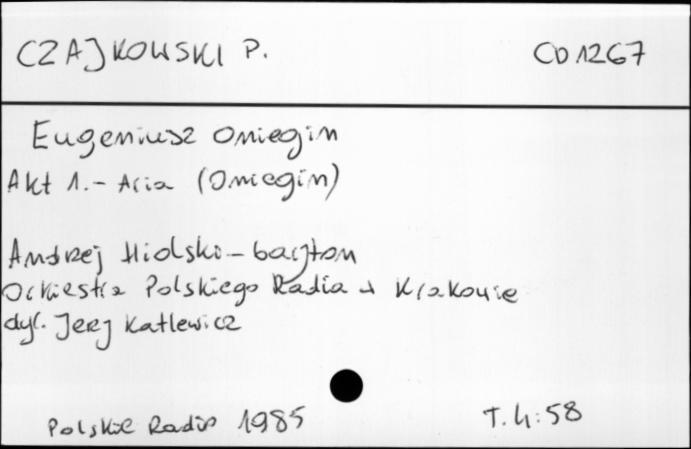 CZAJKOWSKI P. CD 1267
Eugeniusz Oniegin
Akt 1. - Aria (Oniegin)
Andrzej Hiolski - baryton
Orkiestra Polskiego Radia w Krakowie
dyr. Jerzy Katlewicz
Polskie Radio 1985 T. 4:58